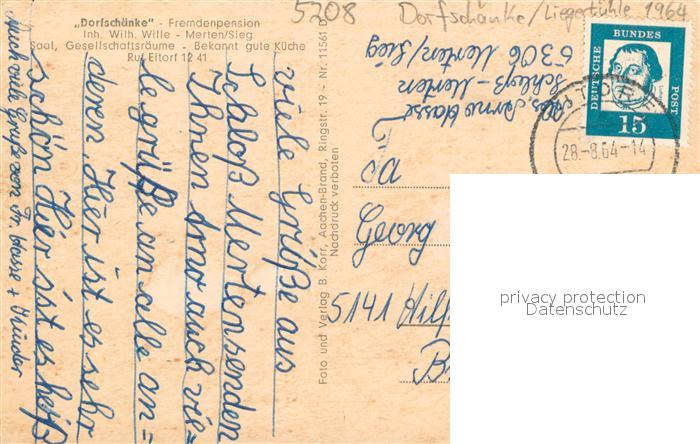 „Dorfschänke" - Fremdenpension
Inh. Wilh. Wille - Merten/Sieg
Saal, Gesellschaftsräume - Bekannt gute Küche
Ruf Eitorf 12 41
5208 Dorfschänke/Liegestühle 1964
Abs. Arno Hasse
Schloß-Merten
5306 Merten/Sieg
DEUTSCHE
BUNDES
POST
15
28.-8.64-14
viele Grüße aus
Schloß Merten senden
Ihnen Arno auch vie=
le grüße an alle an=
deren. Hier ist es sehr
schön Hier ist es heiß
Auch viele Grüße von Fr. Hasse + Kinder
Foto und Verlag B. Korr, Aachen-Brand, Ringstr. 19 - Nr. 11561 D
Nachdruck verboten
Georg
5141 Hilf
privacy protection
Datenschutz